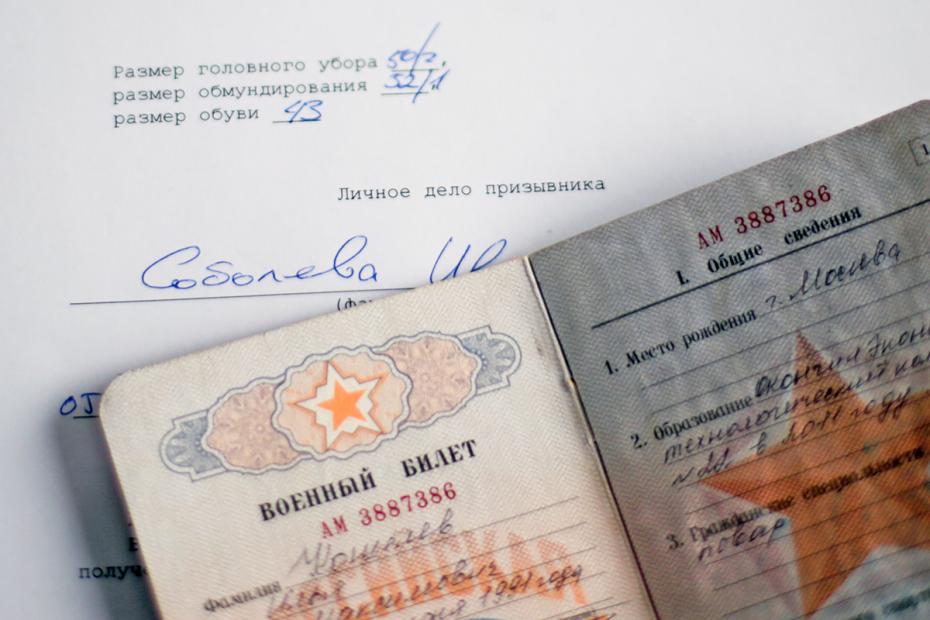 Размер головного убора
размер обмундирования 52/
размер обуви 43
Личное дело призывника
Соболева
(фа
ОТ
получе
ВОЕННЫЙ БИЛЕТ
АМ 3887386
Фамилия
Максимович
1991 года
АМ 3887386
I. Общие сведения
1. Место рождения г. Москва
2. Образование окончил Эконо
технологический кол
№22 в 2011 году
3. Гражданские специальности
повар